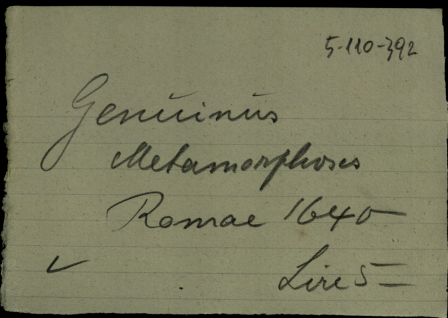 5-110-392
Genuinus
Metamorphoses
Romae 1640
Lire 5=